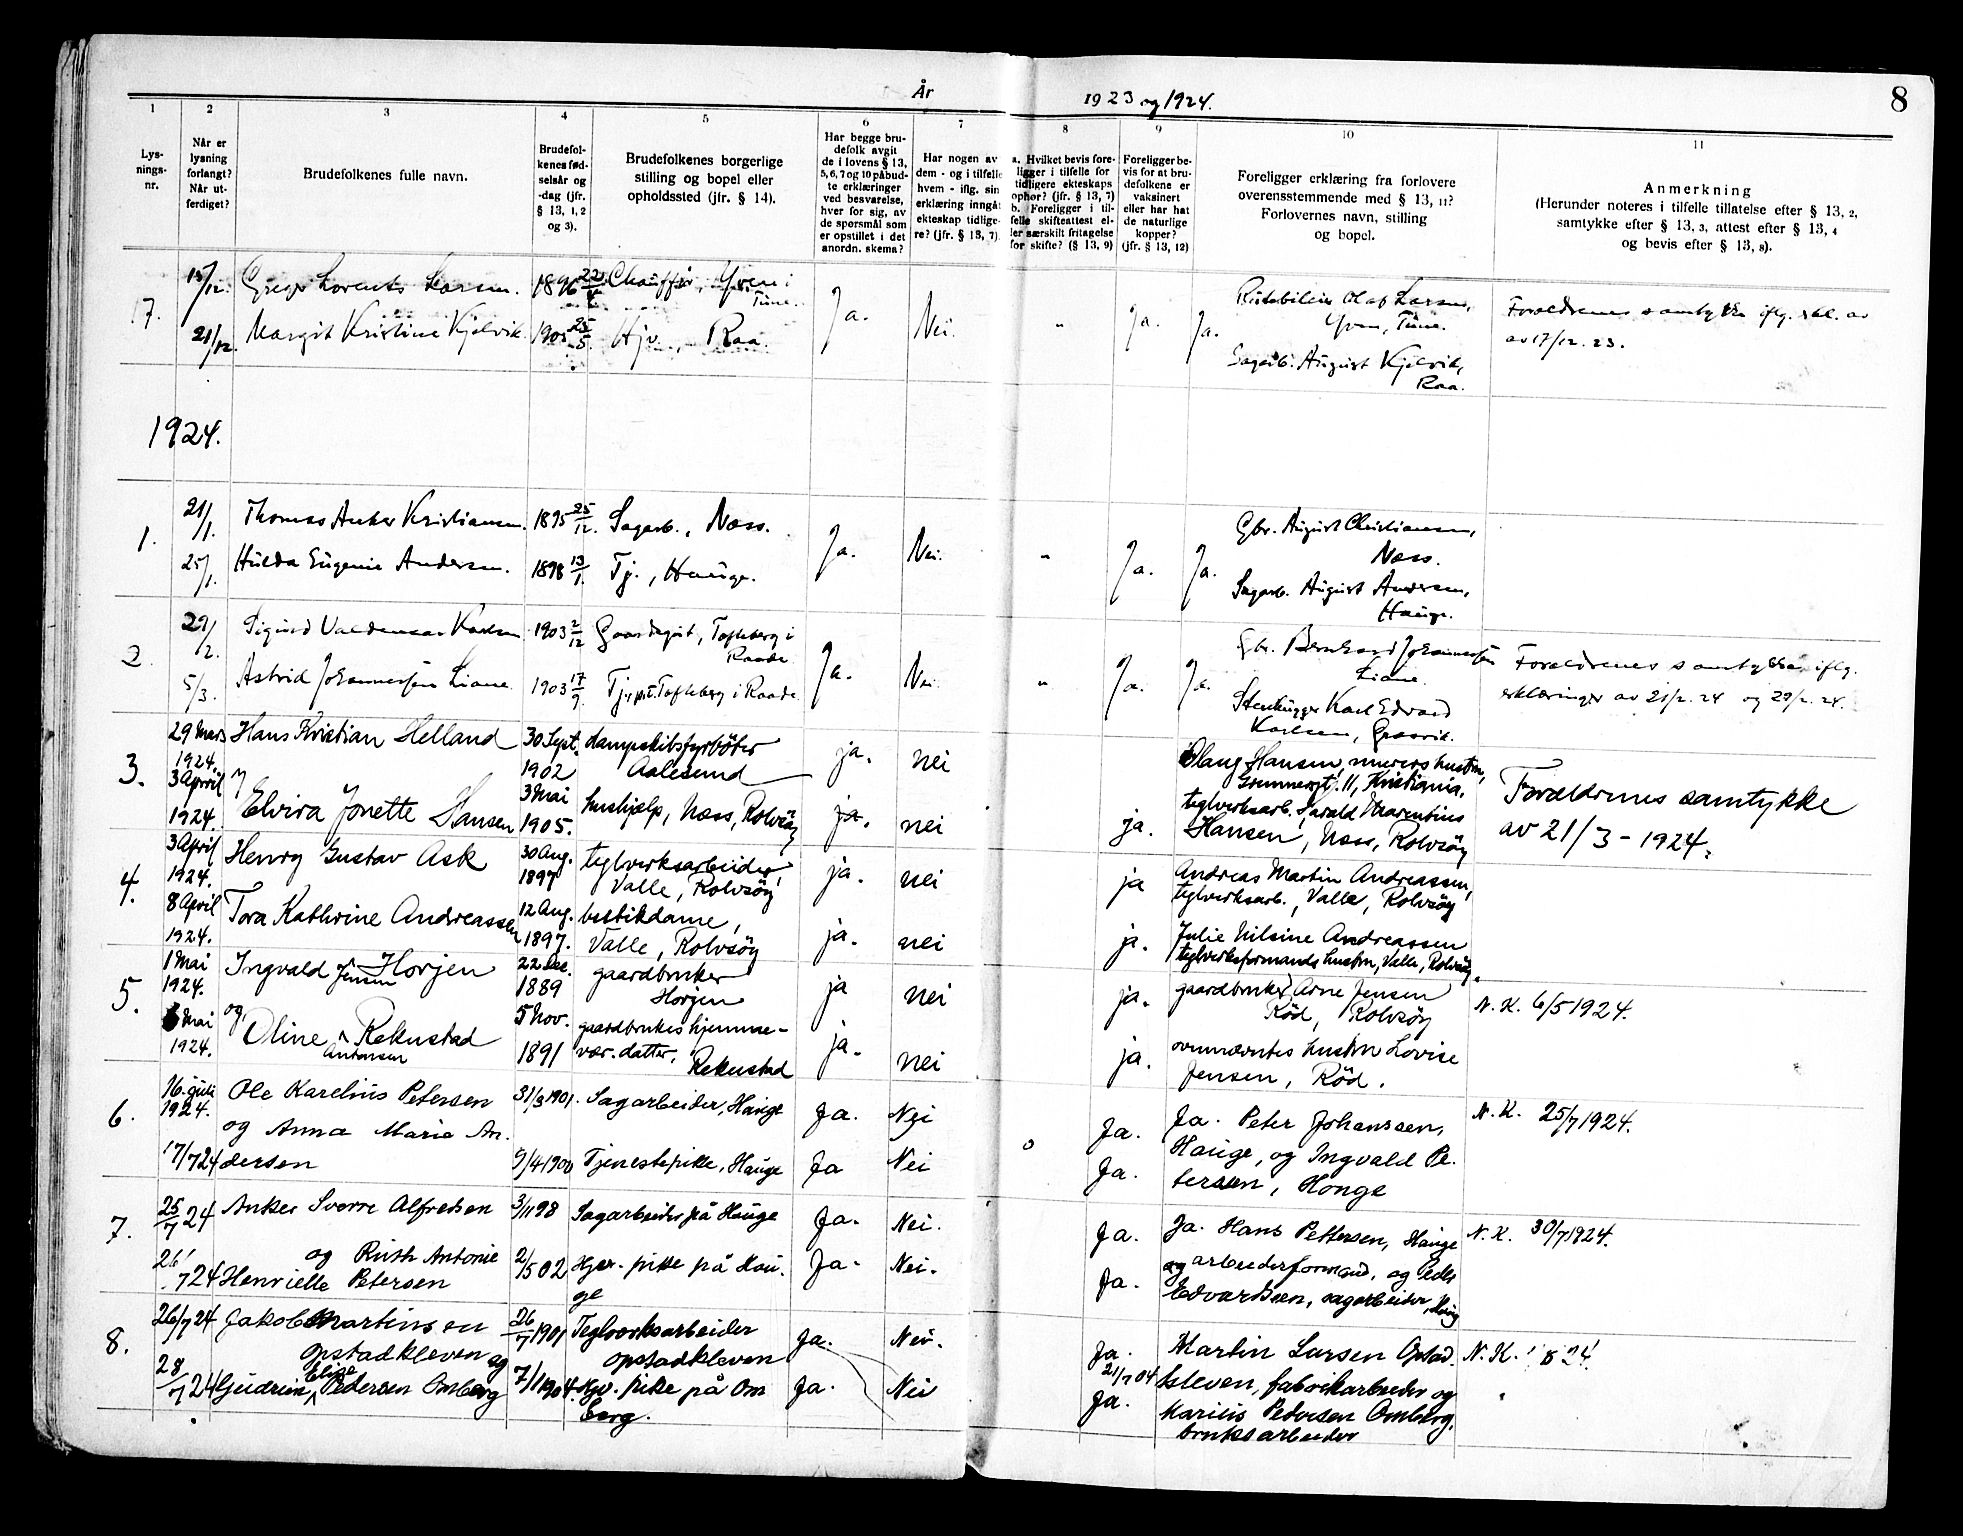 År 1923 og 1924. 8
1 2 3 4 5 6 7 8 9 10 11
Lys-
nings-
nr.
Når er
lysning
forlangt?
Når ut-
ferdiget?
Brudefolkenes fulle navn.
Brudefol-
kenes fød-
selsår og
-dag (jfr.
§ 13, 1, 2
og 3).
Brudefolkenes borgerlige
stilling og bopel eller
opholdssted (jfr. § 14).
Har begge bru-
defolk avgit
de i lovens § 13,
5, 6, 7 og 10 påbud-
te erklæringer
ved besvarelse,
hver for sig, av
de spørsmål som
er opstillet i det
anordn. skema?
Har nogen av
dem - og i tilfelle
hvem - iflg. sin
erklæring inngåt
ekteskap tidlige-
re? (jfr. § 13, 7)
a. Hvilket bevis fore-
ligger i tilfelle for
tidligere ekteskaps
ophør? (jfr. § 13, 7)
b. Foreligger i til-
felle skifteattest el-
ler særskilt fritagelse
for skifte? (§ 13, 9)
Foreligger be-
vis for at bru-
defolkene er
vaksinert
eller har hat
de naturlige
kopper?
(jfr. § 13, 12)
Foreligger erklæring fra forlovere
overensstemmende med § 13, 11?
Forlovernes navn, stilling
og bopel.
Anmerkning
(Herunder noteres i tilfelle tillatelse efter § 13, 2,
samtykke efter § 13, 3, attest efter § 13, 4
og bevis efter § 13, 8).
17.
Lorents Larsen. 1896 Chauffør, Yven i
Tune.
21/12. Margit Kristine Kjølvik. 25/5 Hjv., Raa.
Ja. Nei. " Ja. Ja.
Olaf Larsen,
Yven, Tune.
Sagarb. August Kjølvik,
Raa.
Forældrenes samtykke iflg. erkl. av
av 17/12. 23.
1924.
1.
21/1. Thomas Anker Kristiansen. 1895 25/12. Sagarb., Næss.
25/1. Hulda Eugenie Andersen. 1898 13/1. Tj., Hauge.
Ja. Nei. " Ja. Ja.
Gbr. August Christiansen,
Næss.
Sagarb. August Andersen,
Hauge.
2.
29/2. Sigurd Valdemar Karlsen 1903 2/12 Gaardsgut, Tofteberg i
Raade
5/3. Astrid Johannessen Liane. 1903 17/9. Tj.pt. Tofteberg i Raade
Ja. Nei. " Ja. Ja.
Gbr. Bernhard Johannessen
Liane.
Stenhugger Karl Edvard
Karlsen, Greaavik.
Forældrenes samtykke iflg.
erklæringer av 21/2. 24 og 29/2. 24.
3.
29 Mars
1924.
Hans Kristian Helland 30 Sept.
1902
dampskibsfyrbøter
Aalesund
ja. nei
3 April
1924.
Elvira Jonette Hansen 3 Mai
1905.
hushjelp, Næss, Rolvsøy
ja. nei ja.
Olaug Hansen, murers hustru,
Grønnergt. 11, Kristiania.
teglverksarb. Harald Marentius
Hansen, Næss, Rolvsøy
Forældrenes samtykke
av 21/3 - 1924.
4.
3 April
1924.
Henry Gustav Ask 30 Aug.
1897
teglverksarbeider,
Valle, Rolvsøy
ja. nei ja
Andreas Martin Andreassen,
teglverksarb., Valle, Rolvsøy
8 April
1924.
Tora Kathrine Andreassen 12 Aug.
1897.
bestikdame,
Valle, Rolvsøy
ja. nei ja.
Julie Nilsine Andreassen
teglverksformands hustru, Valle, Rolvsøy.
5.
1 Mai
1924.
Ingvald Jensen Horjen 22 Dec.
1889
gaardbruker
Horjen
ja nei ja.
gaardbruker Arne Jensen
Rød, Rolvsøy
N. K. 6/5 1924.
6 Mai
1924.
og
Oline Antonsen Rekustad 5 Nov.
1891
gaardbrukes hjemme-
vær. datter, Rekustad
ja. nei ja.
ovennævntes hustru Lovise
Jensen, Rød.
6.
16. juli
1924.
Ole Karelius Petersen 31/3 1901. Sagarbeider, Hauge Ja. Nei
og Anna Marie An-
17/7 24 dersen 9/4 1900 Tjenestepike, Hauge Ja Nei
o Ja. Ja.
Ja. Peter Johanssen,
Hauge, og Ingvald Pe-
tersen, Hauge
N. K. 25/7 1924.
7.
25/7 24 Anker Sverre Alfredsen 3/11 98 Sagarbeider på Hauge Ja. Nei.
26/7 24 og Ruth Antonie
Henrielle Petersen 2/5 02 Hjv. pike på Hau-
ge
Ja. Nei.
Ja. Ja.
Ja. Hans Pettersen, Hauge
arbeiderformand, og Peder
Edvardsen, sagarbeider, Hauge
N. K. 30/7 1924.
8.
26/7 24 Jakob Martinsen
Opstadkleven og
26/7 1901 Teglverksarbeider
Opstadkleven
Ja. Nei.
28/7 24 Gudrun Elise Pedersen Omberg 7/1 1904. Hjv. pike på Om
berg.
Ja. Nei
Ja.
21/7 04
Ja.
Martin Larsen Opstad-
kleven, fabrikarbeider og
Marius Pedersen Omberg,
bruksarbeider
N. K. 1/8 24.
"